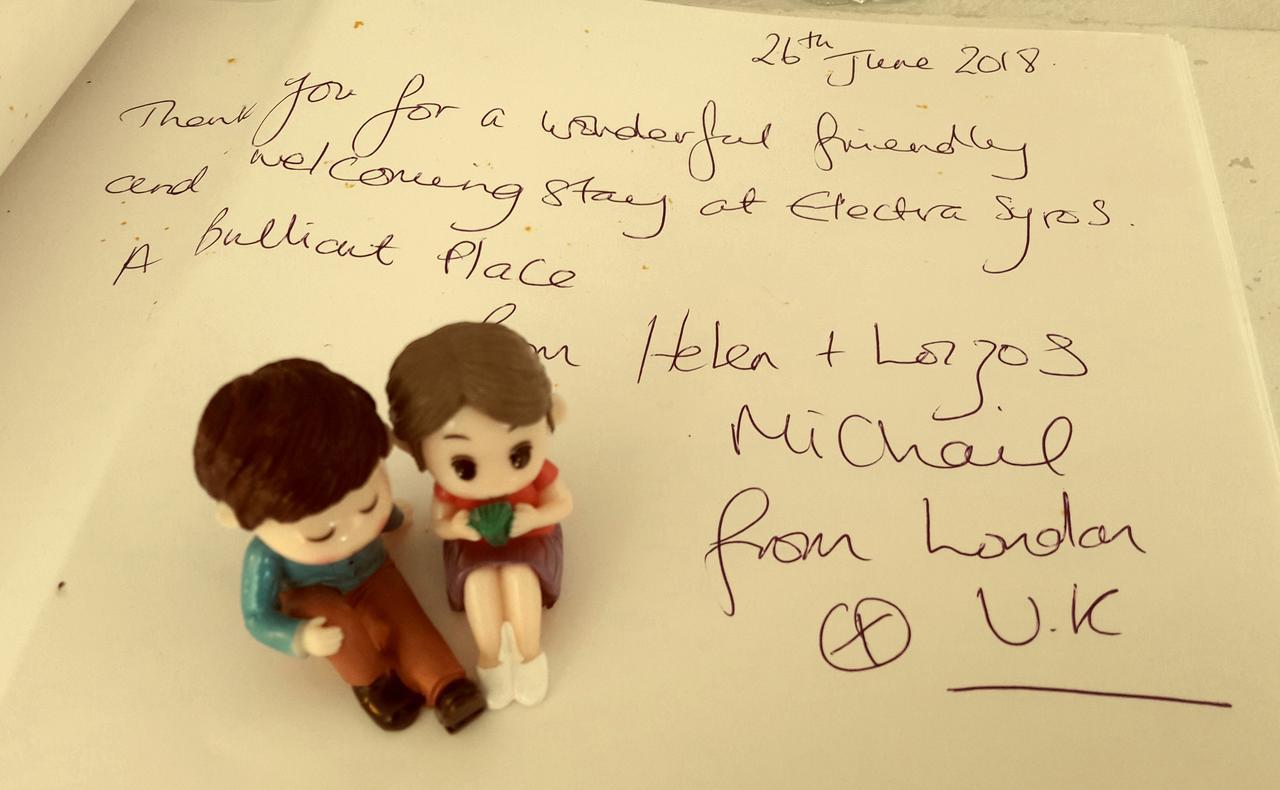 26th June 2018.
Thank you for a wonderful friendly
and welcoming stay at Electra Syros.
A Brilliant Place
from Helen + Lazos
Michail
from London
U.K